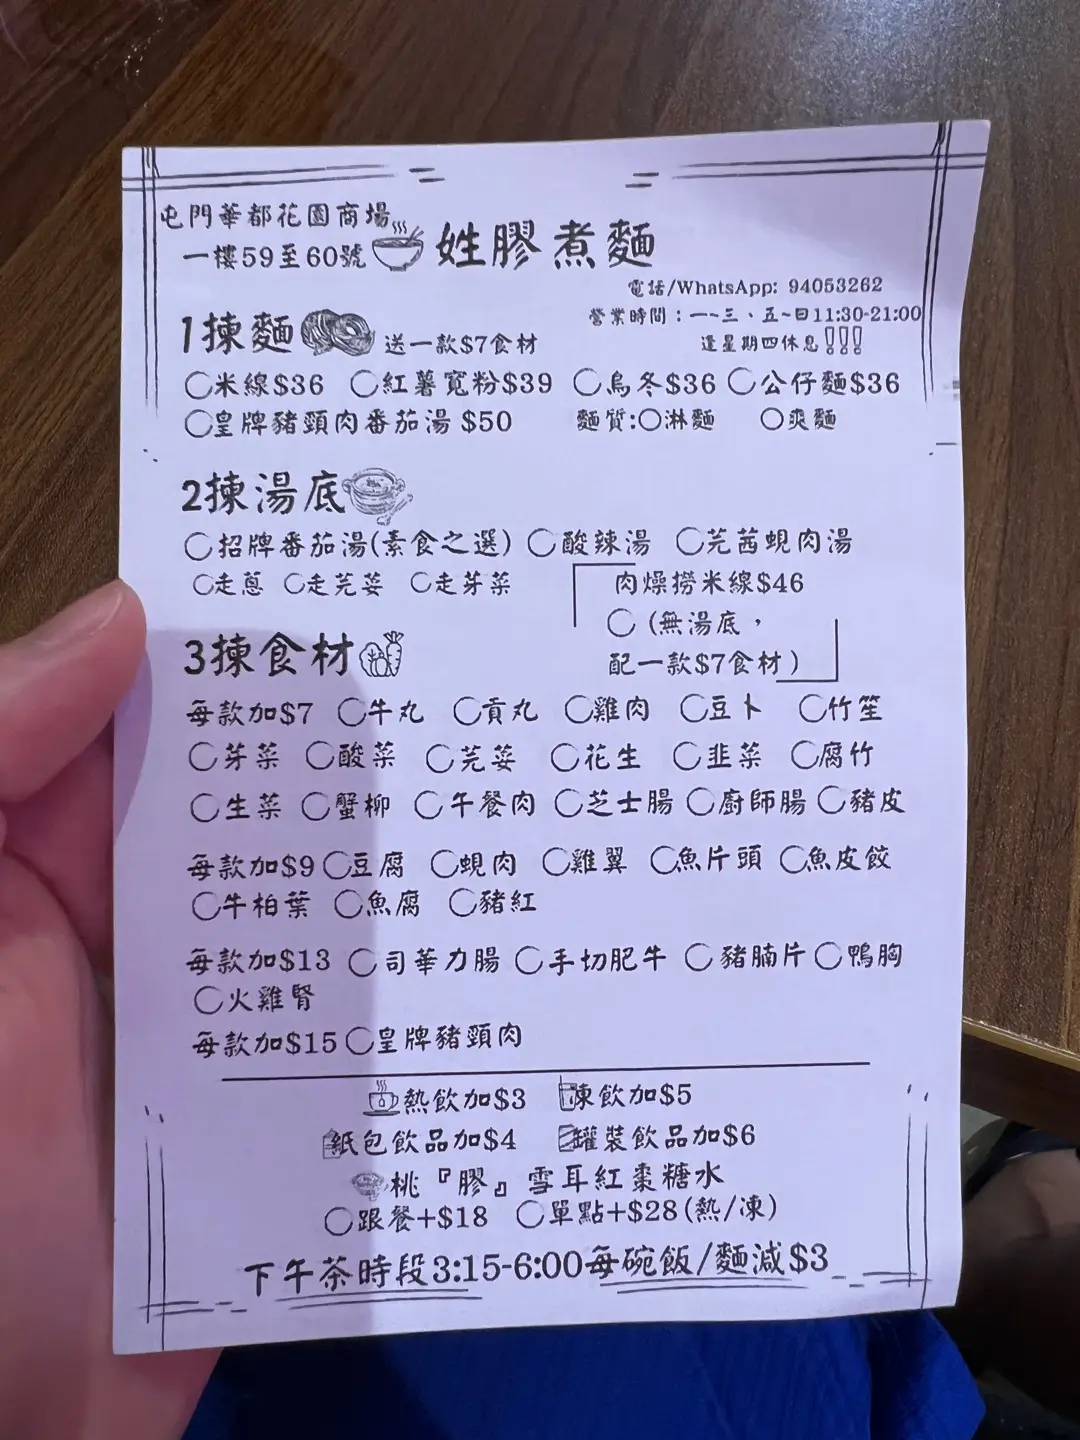 屯門華都花園商場
一樓59至60號 姓膠煮麵
電話/WhatsApp: 94053262
營業時間：一~三、五~日11:30-21:00
逢星期四休息!!!
1揀麵 送一款$7食材
〇米線$36 〇紅薯寬粉$39 〇烏冬$36 〇公仔麵$36
〇皇牌豬頸肉番茄湯 $50 麵質:〇淋麵 〇爽麵
2揀湯底
〇招牌番茄湯(素食之選) 〇酸辣湯 〇芫茜蜆肉湯
〇走蔥 〇走芫荽 〇走芽菜
肉燥撈米線$46
〇 (無湯底，
配一款$7食材)
3揀食材
每款加$7 〇牛丸 〇貢丸 〇雞肉 〇豆卜 〇竹笙
〇芽菜 〇酸菜 〇芫荽 〇花生 〇韭菜 〇腐竹
〇生菜 〇蟹柳 〇午餐肉 〇芝士腸 〇廚師腸 〇豬皮
每款加$9 〇豆腐 〇蜆肉 〇雞翼 〇魚片頭 〇魚皮餃
〇牛柏葉 〇魚腐 〇豬紅
每款加$13 〇司華力腸 〇手切肥牛 〇豬腩片 〇鴨胸
〇火雞腎
每款加$15 〇皇牌豬頸肉
熱飲加$3 凍飲加$5
紙包飲品加$4 罐裝飲品加$6
桃『膠』雪耳紅棗糖水
〇跟餐+$18 〇單點+$28(熱/凍)
下午茶時段3:15-6:00每碗飯/麵減$3